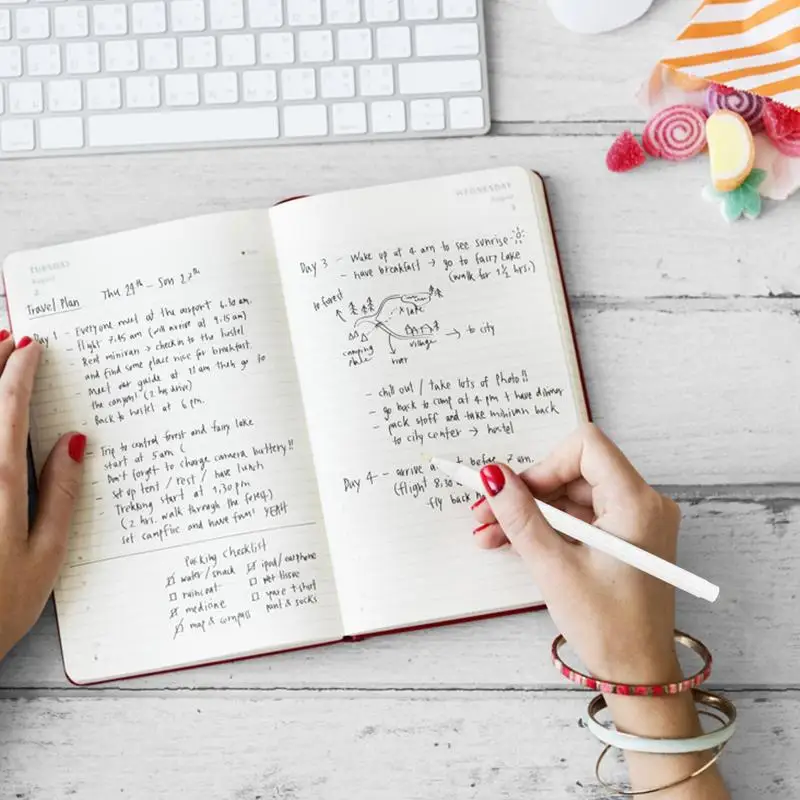 TUESDAY
August
Travel Plan Thu 24th - Sun 27th
Day 1 - Everyone meet at the airport 6.10 am.
- Flight 7.45 am (will arrive at 9.15 am)
- Rent minivan → checkin to the hostel
and find some place nice for breakfast.
- Meet our guide at 11 am then go to
the canyon! (2 hrs drive)
- Back to hostel at 6 pm.
- Trip to central forest and fairy lake
start at 5 am
- Don't forget to charge camera battery!!
- set up tent / Rest / have lunch
- Trekking start at 1.30 pm
(2 hrs. walk through the forest)
- set campfire and have fun! YEAH
Packing Checklist
water / snack
raincoat
medicine
map & compass
ipod / earphone
wet tissue
spare t-shirt
pant & socks
WEDNESDAY
August
Day 3 - Wake up at 4 am to see sunrise
- have breakfast → go to fairy Lake
(walk for 1 1/2 hrs.)
to forest
x lake
→ to city
camping place
river
village
- chill out / take lots of Photo!!
- go back to camp at 4 pm & have dinner
- pack stuff and take minivan back
to city center → hostel
Day 4 - arrive before 7 am
(flight 8.30
fly back